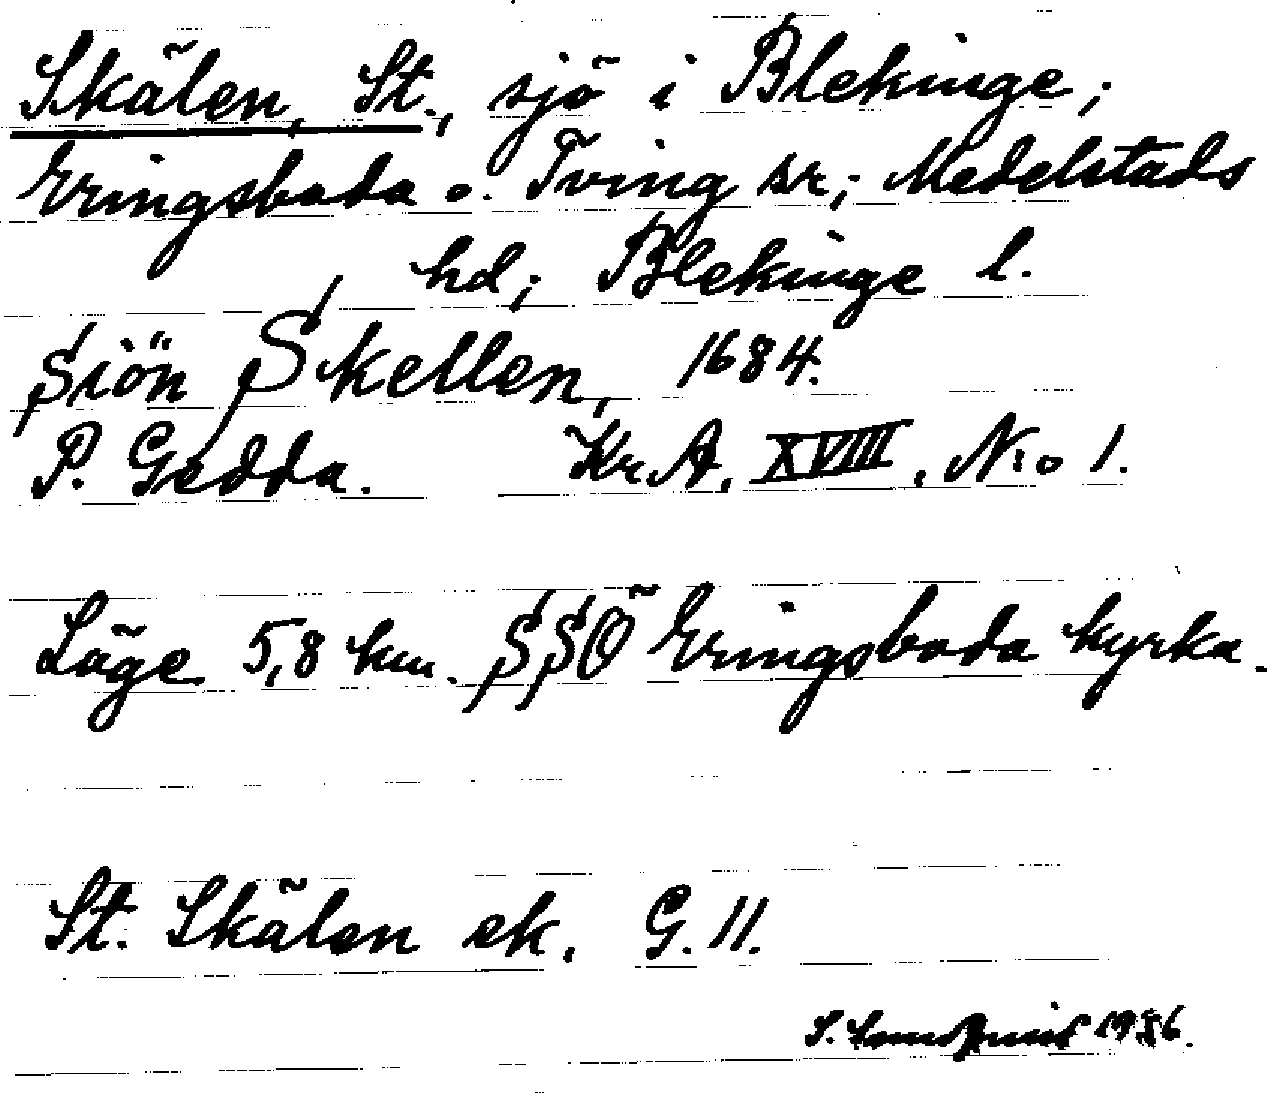 Skälen, St., sjö i Blekinge;
Eringsboda o. Tving sr; Medelstads
hd; Blekinge l.
Siön Skellen, 1684.
P. Gedda. Kr.A. XVIII, N:o 1.
Läge 5,8 km. SSÖ Eringsboda kyrka.
St. Skälen ek. G. 11.
S. 1986.